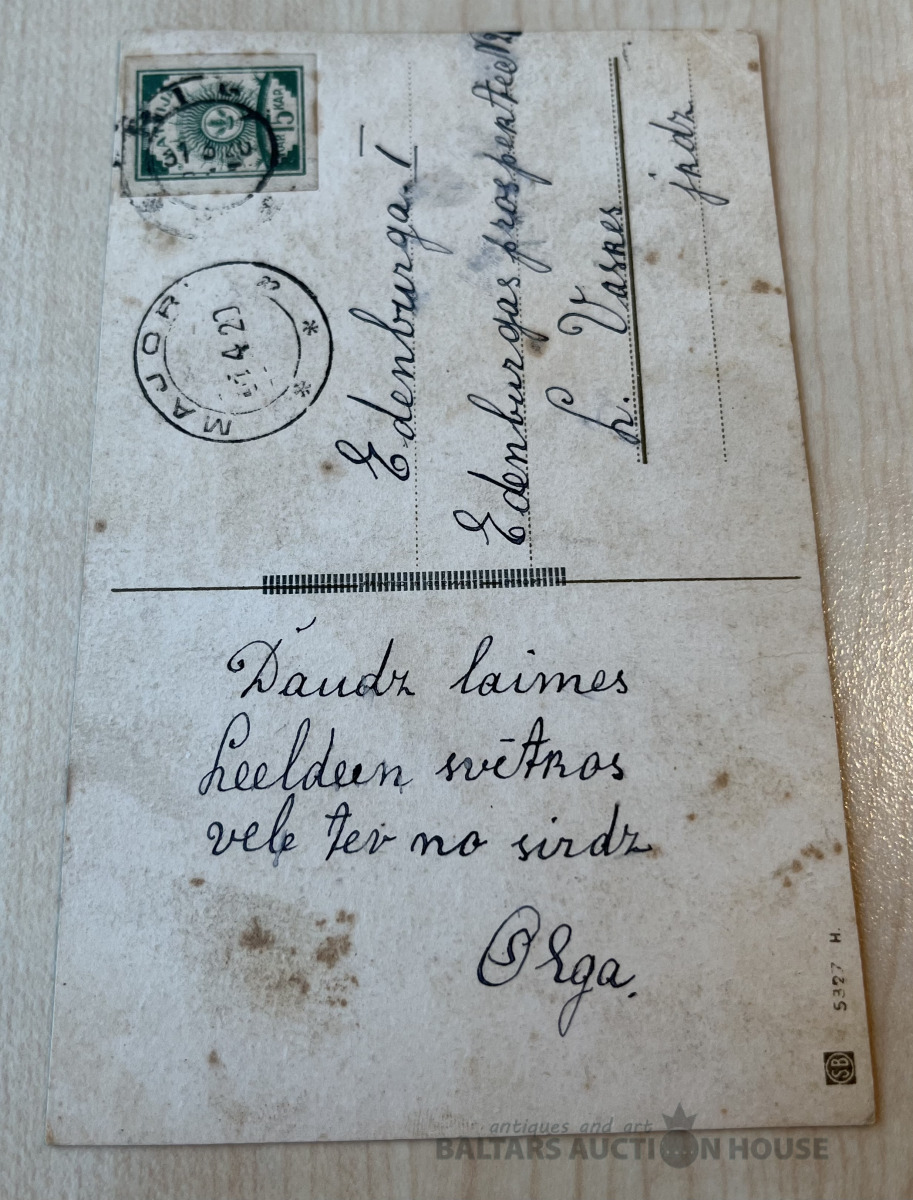 LATVIJA
15 KAR
MAJOR.
Edenburga!
Edenburgas prospektee №
L. Vaskes
jkdz
Daudz laimes
Leeldeen svētkos
vele tev no sirdz
Olga.
5327 H.
SB
antiques and art
BALTARS AUCTION HOUSE